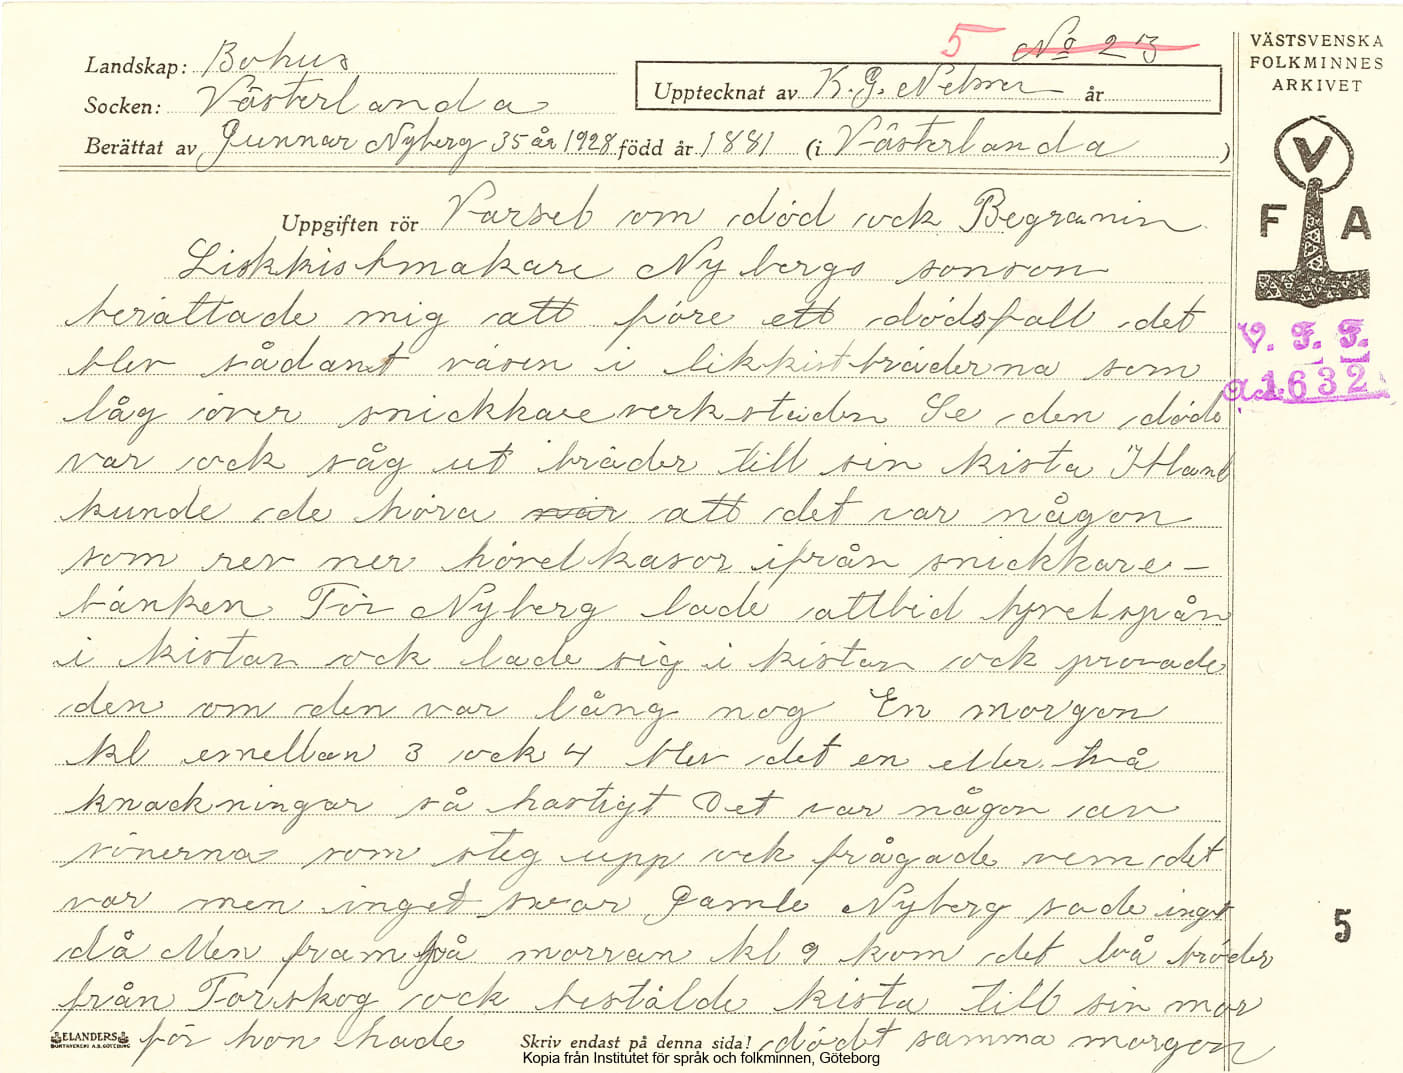 5 No 23
VÄSTSVENSKA
FOLKMINNES
ARKIVET
Landskap: Bohus
Socken: Västerlanda
Upptecknat av K. G. år
Berättat av Gunnar Nyberg 35 år 1928 född år 1881 (i Västerlanda)
V F A
Uppgiften rör Varsel om död ock Begravnin
Liskkistmakare Nybergs sonson
berättade mig att före ett dödsfall det
blev sådant väsen i likkistbräderna som
låg över snickkareverkstaden Se den döde
var ock såg ut bräder till sin kista Ibland
kunde de höra när att det var någon
som rev ner hövelkasor ifrån snickkare-
bänken För Nyberg lade alltid hövelspån
i kistan ock lade sig i kistan ock provade
den om den var lång nog En morgon
kl emellan 3 ock 4 blev det en eller två
knackningar så hastigt Det var någon av
sönerna som steg upp ock frågade vem det
var men inget svar Gamle Nyberg sade inget
då Men fram på morran kl 9 kom det två bröder
från Torskog ock bestälde kista till sin mor
för hon hade dödt samma morgon
V. F. F.
Acc. 1632
5
ELANDERS
BOKTRYCKERI A.B. GÖTEBORG
Skriv endast på denna sida!
Kopia från Institutet för språk och folkminnen, Göteborg